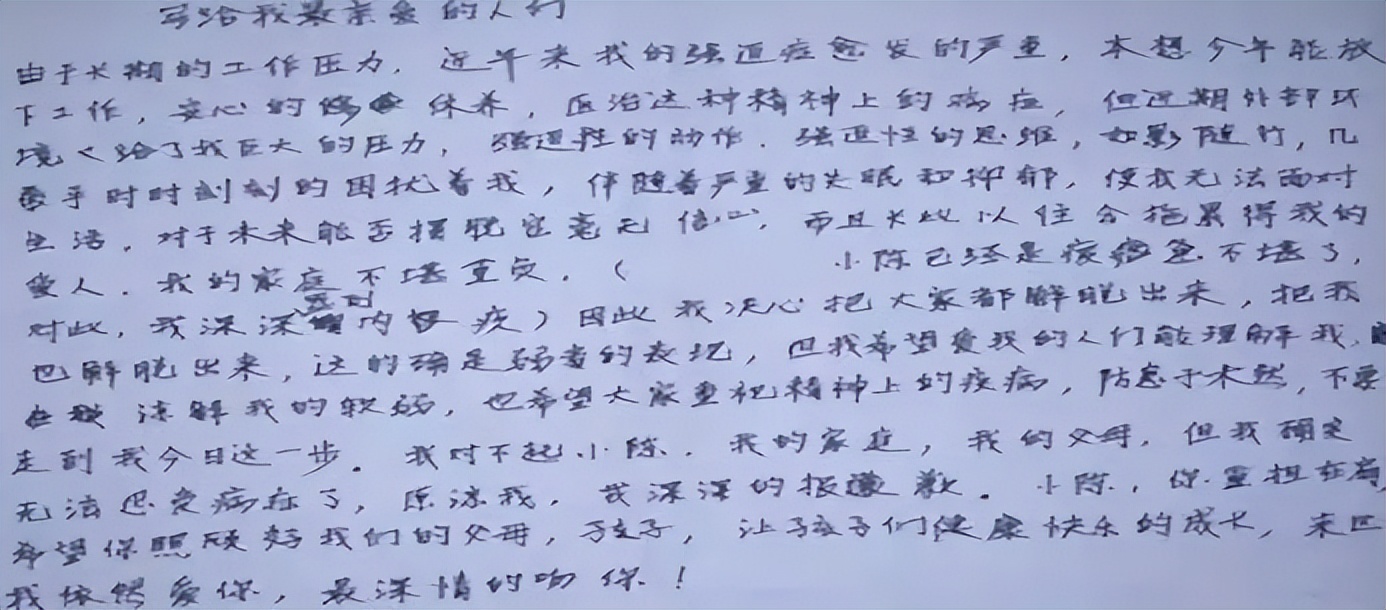 写给我最亲爱的人们
由于长期的工作压力，近年来我的强迫症愈发的严重，本想今年能放
下工作，安心的休养，医治这种精神上的病症，但近期外部环
境给了我巨大的压力，强迫性的动作．强迫性的思维，如影随行，几
乎时时刻刻的困扰着我，伴随着严重的失眠和抑郁，使我无法面对
生活，对于未来能否摆脱它毫无信心，而且长此以往会拖累得我的
爱人．我的家庭不堪重负．（ 小陈已经是疲惫不堪了，
对此，我深深感到内疚）因此我决心把大家都解脱出来，把我
也解脱出来，这的确是弱者的表现，但我希望爱我的人们能理解我，
谅解我的软弱，也希望大家重视精神上的疾病，防患于未然，不要
走到我今日这一步。我对不起小陈．我的家庭，我的父母．但我确实
无法忍受病症了，原谅我，我深深的报歉。小陈，你重担在肩，
希望你照顾好我们的父母，孩子，让孩子们健康快乐的成长，来世
我依然爱你，最深情的吻你！